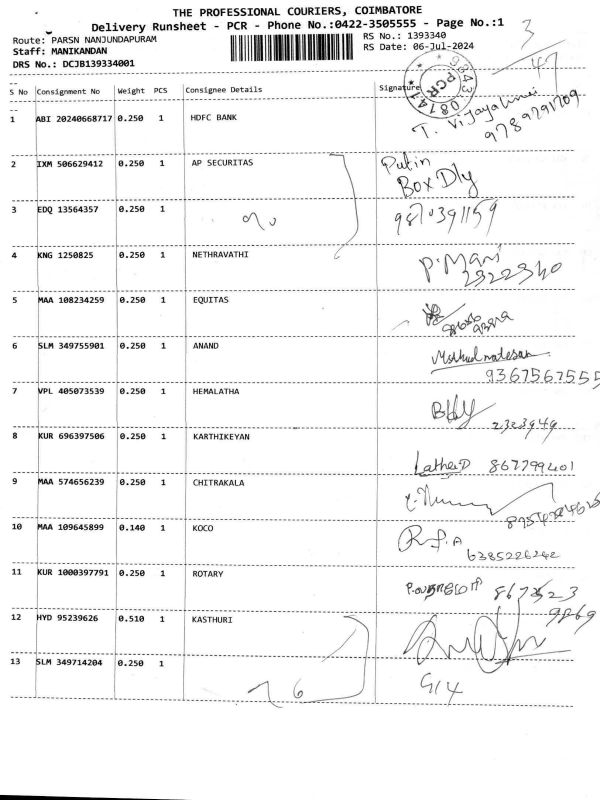 THE PROFESSIONAL COURIERS, COIMBATORE
Delivery Runsheet - PCR - Phone No.:0422-3505555 - Page No.:1
Route: PARSN NANJUNDAPURAM
RS No.: 1393340
Staff: MANIKANDAN
RS Date: 06-Jul-2024
DRS No.: DCJB139334001
3
47
S No Consignment No Weight PCS Consignee Details Signature
PCR
1 ABI 20240668717 0.250 1 HDFC BANK T. Vijayalaxmi
9789791709
2 IXM 506629412 0.250 1 AP SECURITAS Put in
Box Dly
3 EDQ 13564357 0.250 1 9870391159
4 KNG 1250825 0.250 1 NETHRAVATHI P. Mani
2322340
5 MAA 108234259 0.250 1 EQUITAS
6 SLM 349755901 0.250 1 ANAND
9367567555
7 VPL 405073539 0.250 1 HEMALATHA
2323949
8 KUR 696397506 0.250 1 KARTHIKEYAN
Latha D 867799401
9 MAA 574656239 0.250 1 CHITRAKALA
10 MAA 109645899 0.140 1 KOCO
6385226242
11 KUR 1000397791 0.250 1 ROTARY
12 HYD 95239626 0.510 1 KASTHURI
13 SLM 349714204 0.250 1 G14